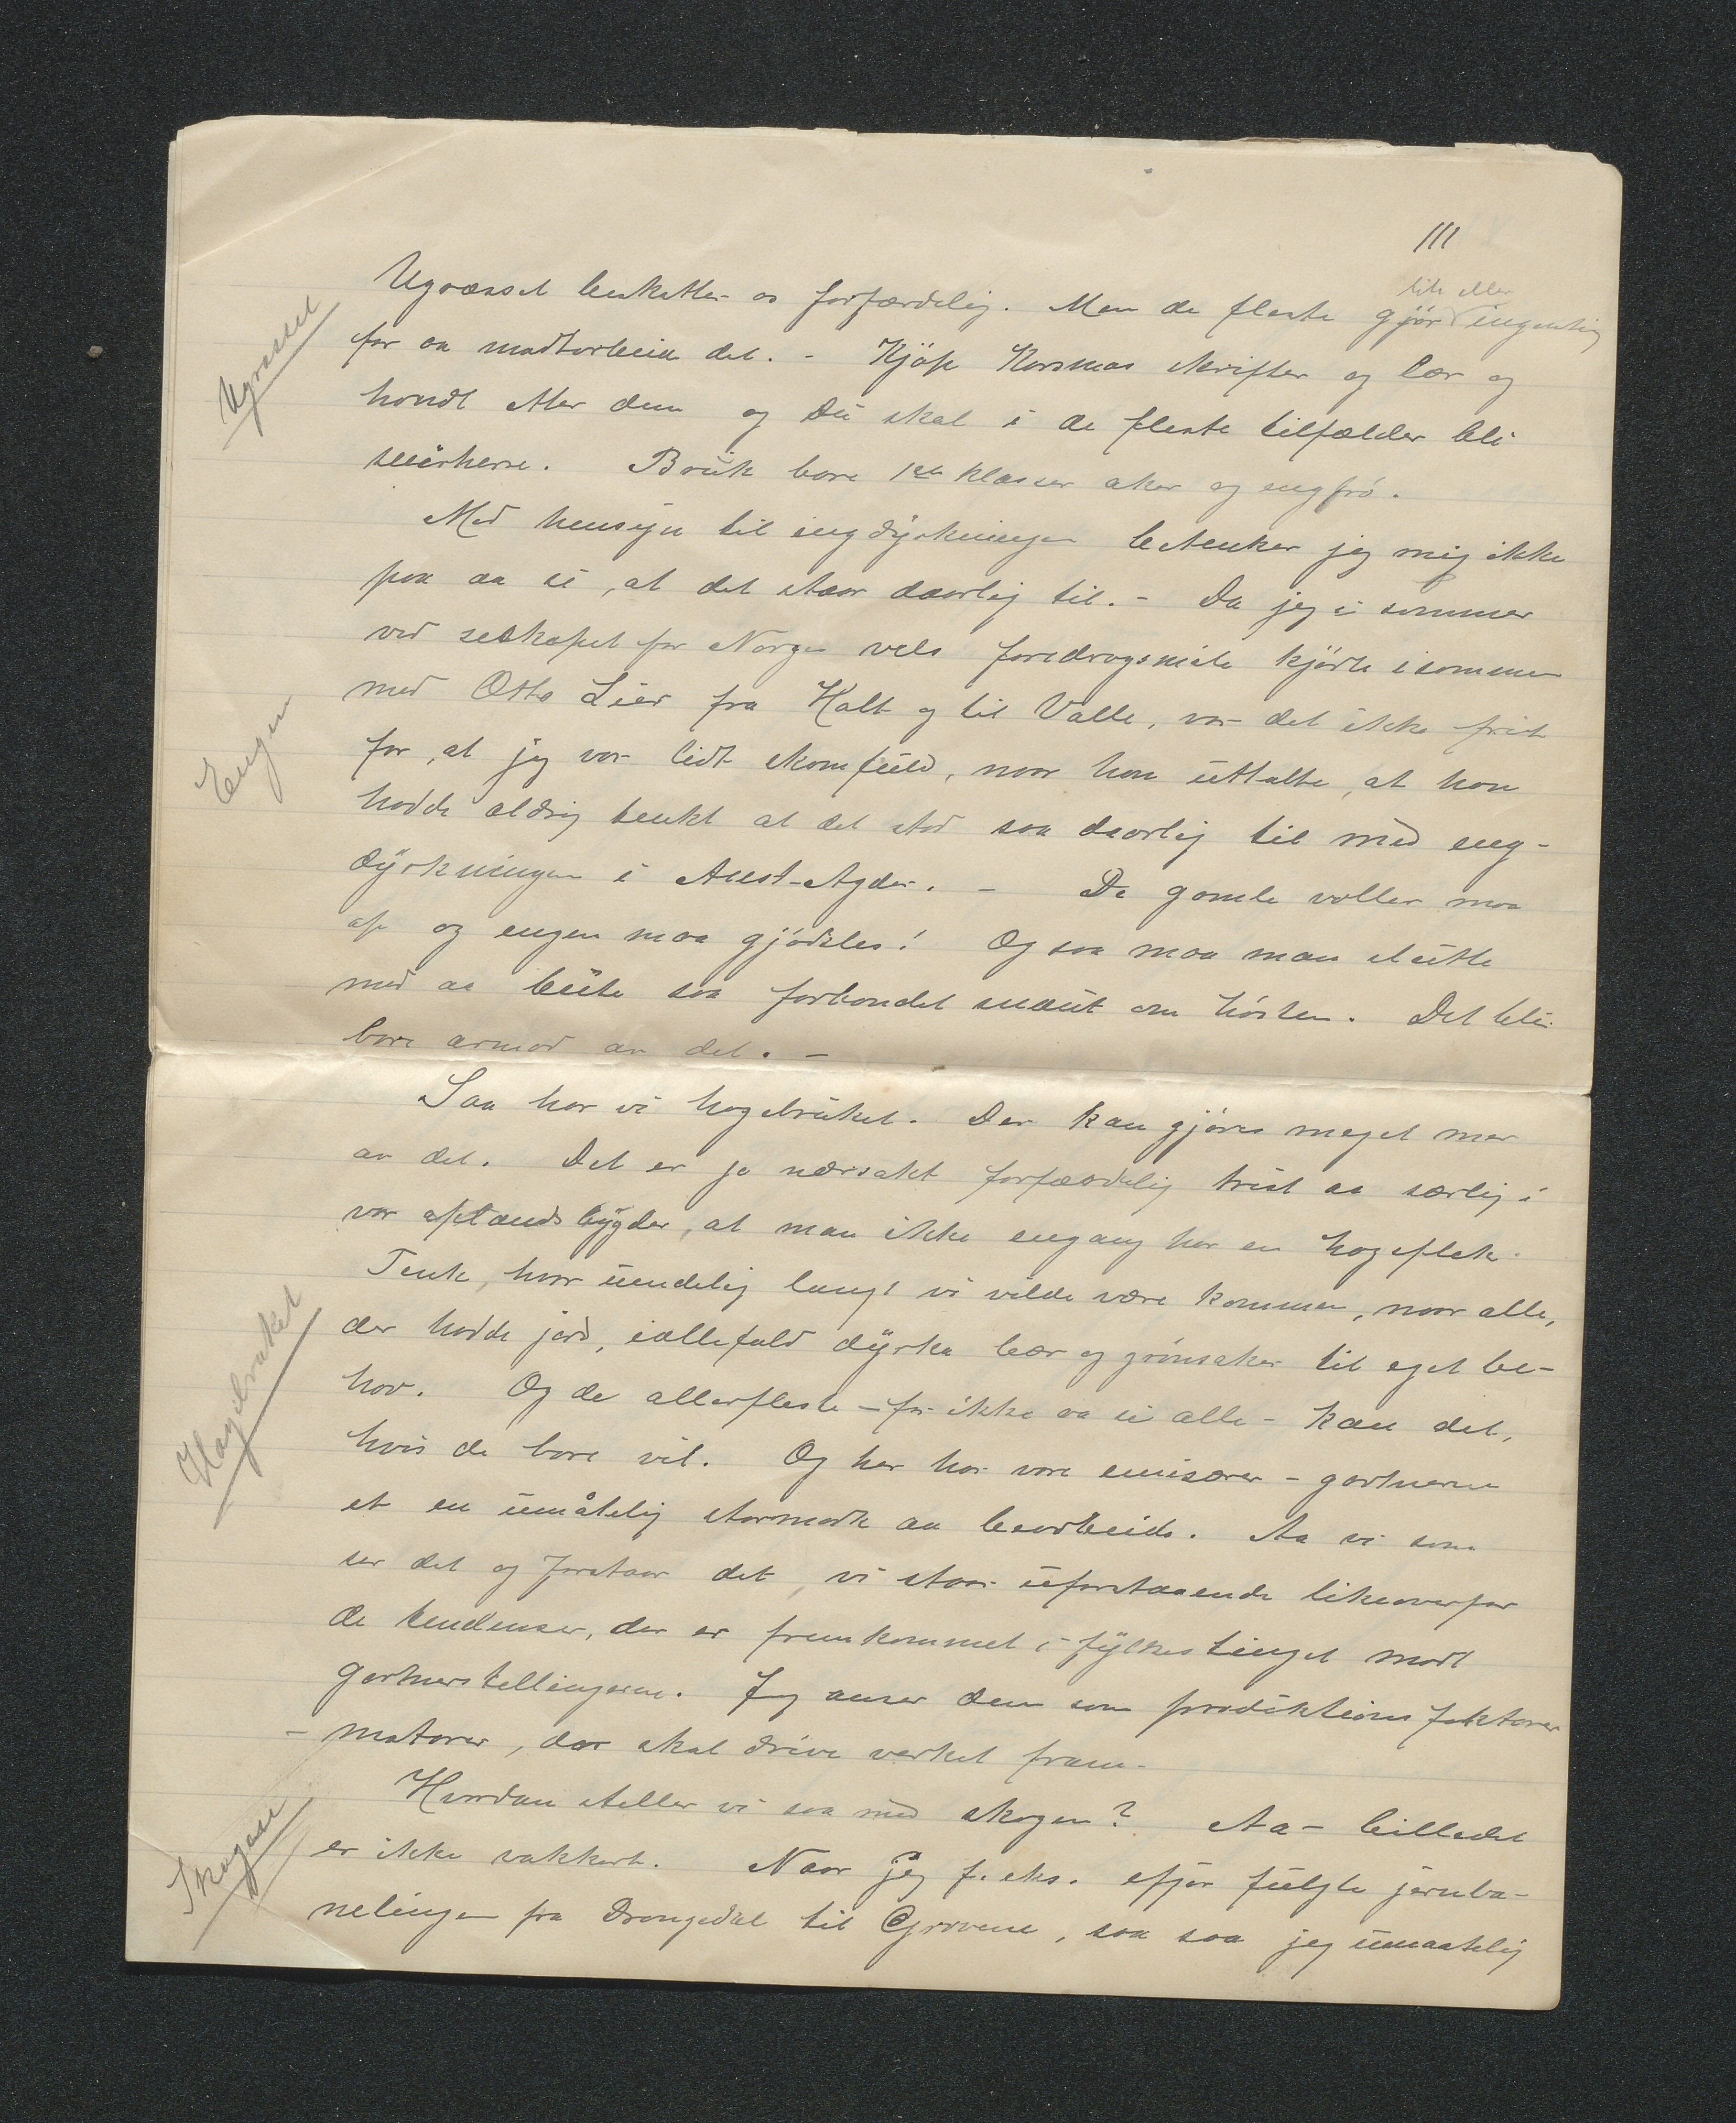 III
lite eller
Ugræsset beskatter os forfærdelig. Men de fleste gjör ingenting
for aa modtarbeide det. - Kjöp Korsmos skrifter og lær og
handl etter dem og Du skal i de fleste tilfælder bli
seierherre. Bruk bare 1ste klasses aker og engfrö.
Ugræsset
Med hensyn til engdyrkningen betænker jeg mig ikke
paa aa si, at det staar daarlig til. - Da jeg i sommer
ved selskapet for Norges vels foredragsmöte kjörte isammen
med Otto Lier fra Holt og til Valle, var det ikke frit
for, at jeg var lidt skamfuld, naar han uttalte, at han
hadde aldrig tenkt at det stod saa daarlig til med eng-
dyrkningen i Aust-Agder. - De gamle voller maa
op og engen maa gjödsles! Og saa maa man slutte
med aa beite saa forbandet snaut om hösten. Det bli
bare armod av det. -
Engen
Saa har vi hagebruket. Der kan gjöres meget mer
av det. Det er ja nærsakt forfærdelig trist aa særlig i
vor oplands bygder, at man ikke engang har en hageflek.
Tenk, hvor uendelig langt vi vilde være kommen, naar alle,
der hadde jord, iallefald dyrka bær og grönsaker til eget be-
hov. Og de allerfleste - for ikke aa si alle - kan det,
hvis de bare vil. Og her har vore emisærer - gartnerne
et en umåtelig stormark aa bearbeide. Aa vi som
ser det og forstaar det, vi staar uforstaaende likeoverfor
de tendenser, der er fremkommet i fylkestinget mot
gartnerstillingerne. Jeg anser dem som produktions faktorer
- motorer, der skal drive verket fram.
Hagebruket
Hvordan steller vi saa med skogen? Aa - billedet
er ikke vakkert. Naar jeg f. eks. ifjor fulgte jernba-
nelingen fra Drangedal til Grovene, saa saa jeg umaatelig
Skogen